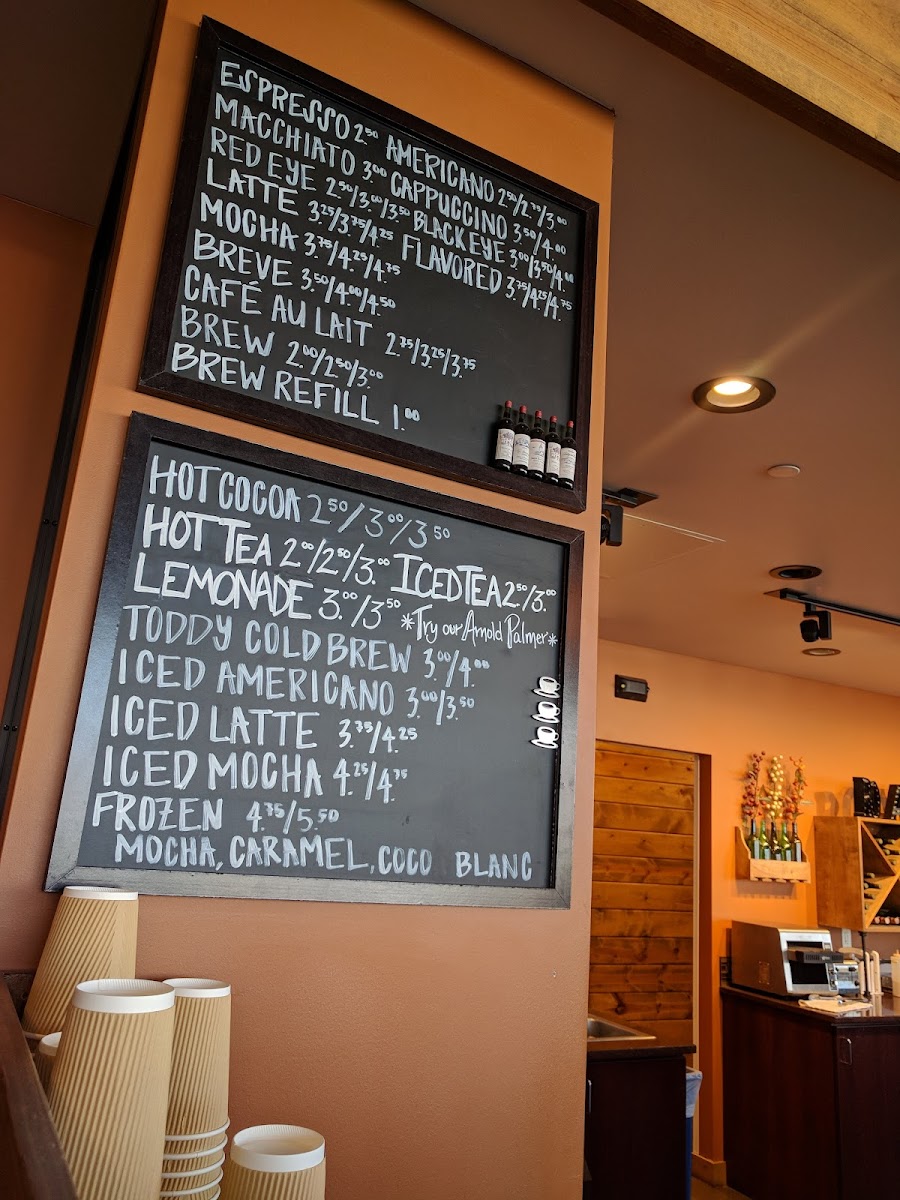 ESPRESSO 2.50 AMERICANO 2.50/2.75/3.00
MACCHIATO 3.00 CAPPUCCINO 3.50/4.00
RED EYE 2.50/3.00/3.50 BLACK EYE 3.00/3.50/4.00
LATTE 3.25/3.75/4.25 FLAVORED 3.75/4.25/4.75
MOCHA 3.75/4.25/4.75
BREVE 3.50/4.00/4.50
CAFÉ AU LAIT 2.75/3.25/3.75
BREW 2.00/2.50/3.00
BREW REFILL 1.00
HOT COCOA 2.50/3.00/3.50
HOT TEA 2.00/2.50/3.00 ICED TEA 2.50/3.00
LEMONADE 3.00/3.50 *Try our Arnold Palmer*
TODDY COLD BREW 3.00/4.00
ICED AMERICANO 3.00/3.50
ICED LATTE 3.75/4.25
ICED MOCHA 4.25/4.75
FROZEN 4.75/5.50
MOCHA, CARAMEL, COCO BLANC